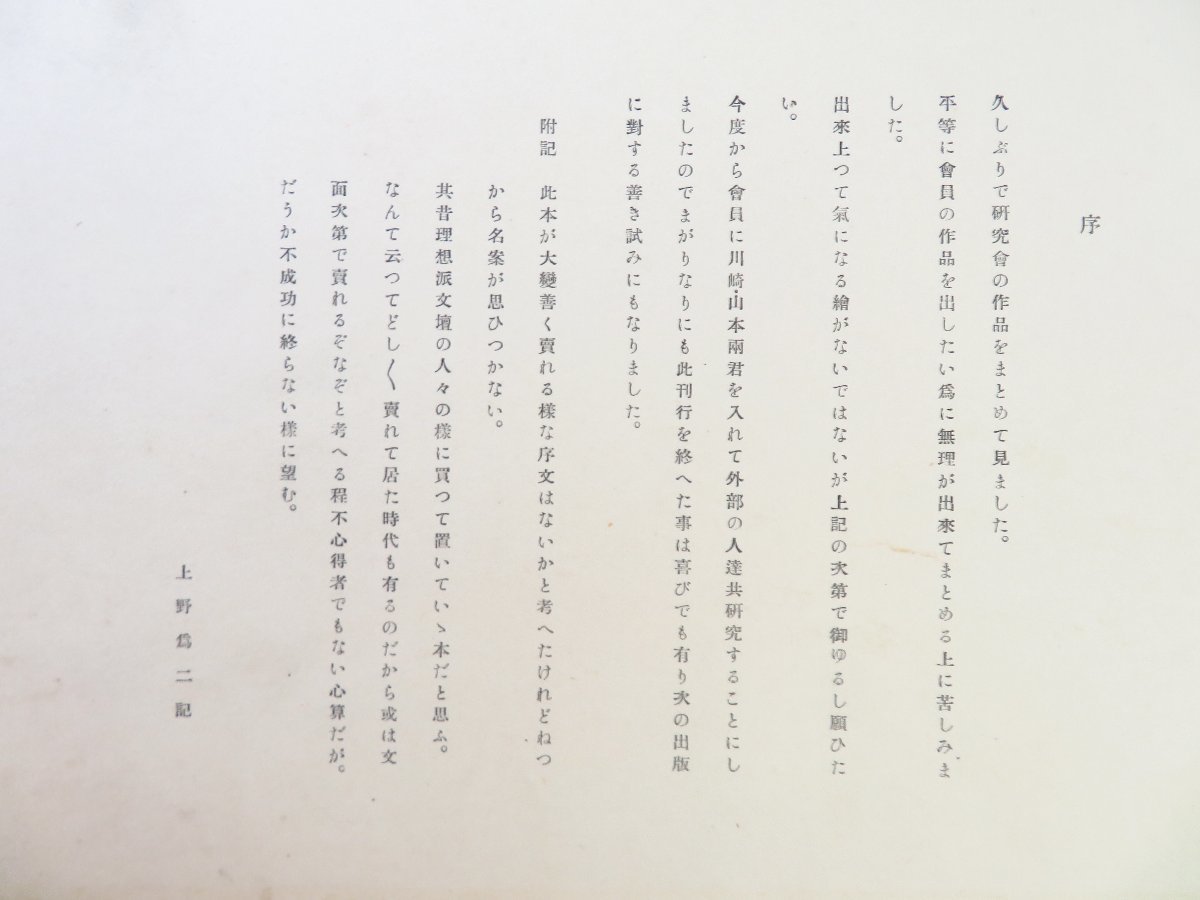 序
久しぶりで研究會の作品をまとめて見ました。
平等に會員の作品を出したい爲に無理が出來てまとめる上に苦しみま
した。
出來上つて氣になる繪がないではないが上記の次第で御ゆるし願ひた
い。
今度から會員に川崎・山本兩君を入れて外部の人達共研究することにし
ましたのでまがりなりにも此刊行を終へた事は喜びでも有り次の出版
に對する善き試みにもなりました。
附記　此本が大變善く賣れる樣な序文はないかと考へたけれどねつ
から名案が思ひつかない。
其昔理想派文壇の人々の樣に買つて置いていゝ本だと思ふ。
なんて云つてどし〱賣れて居た時代も有るのだから或は文
面次第で賣れるぞなぞと考へる程不心得者でもない心算だが。
だうか不成功に終らない樣に望む。
上野爲二記